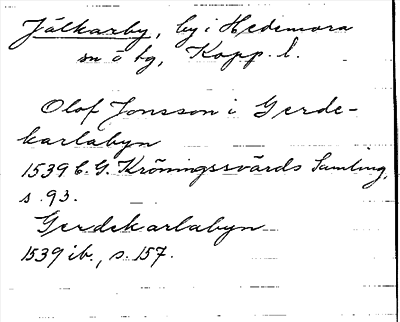 Jälkarby, by i Hedemora
sn o bg, Kopp. l.
Olof Jonsson i Gerde-
karlabyn
1539 C. G. Kröningssvärds Samling,
s. 93.
Gerdekarlabyn
1539 ib., s. 157.